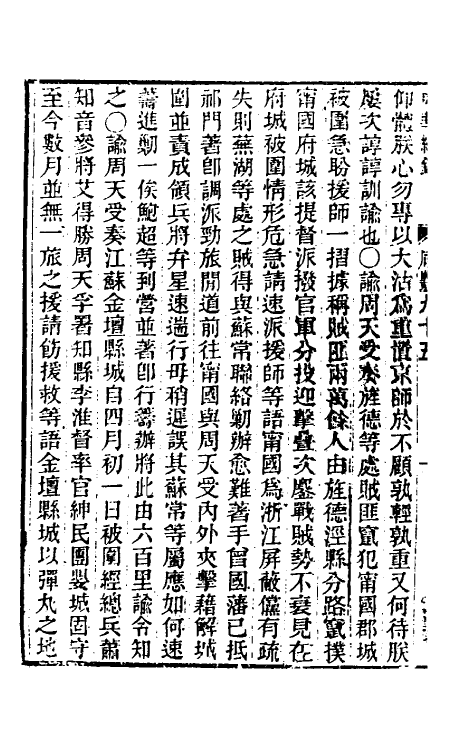 仰體朕心勿專以大沽爲重懷京師於不顧孰輕孰重又何待朕
屢次諄諄訓諭也〇諭周天受奏旌德等處賊匪竄犯甯國郡城
被圍急盼援師一摺據稱賊匪兩萬餘人由旌德涇縣分路竄撲
甯國府城該提督派撥官軍分投迎擊疊次鏖戰賊勢不衰見在
府城被圍情形危急請速派援師等語甯國爲浙江屏蔽儻有疏
失則蕪湖等處之賊得與蘇常聯絡勦辦愈難著手曾國藩已抵
祁門著卽調派勁旅開道前往甯國與周天受內外夾擊藉解城
圍並責成領兵將弁星速遄行毋稍遲誤其蘇常等屬應如何速
籌進勦一俟鮑超等到營並著卽行籌辦將此由六百里諭令知
之〇諭周天受奏江蘇金壇縣城自四月初一日被圍經總兵蕭
知音參將艾得勝周天孚署知縣李淮督率官紳民團嬰城固守
至今數月並無一旅之援請飭援救等語金壇縣城以彈丸之地